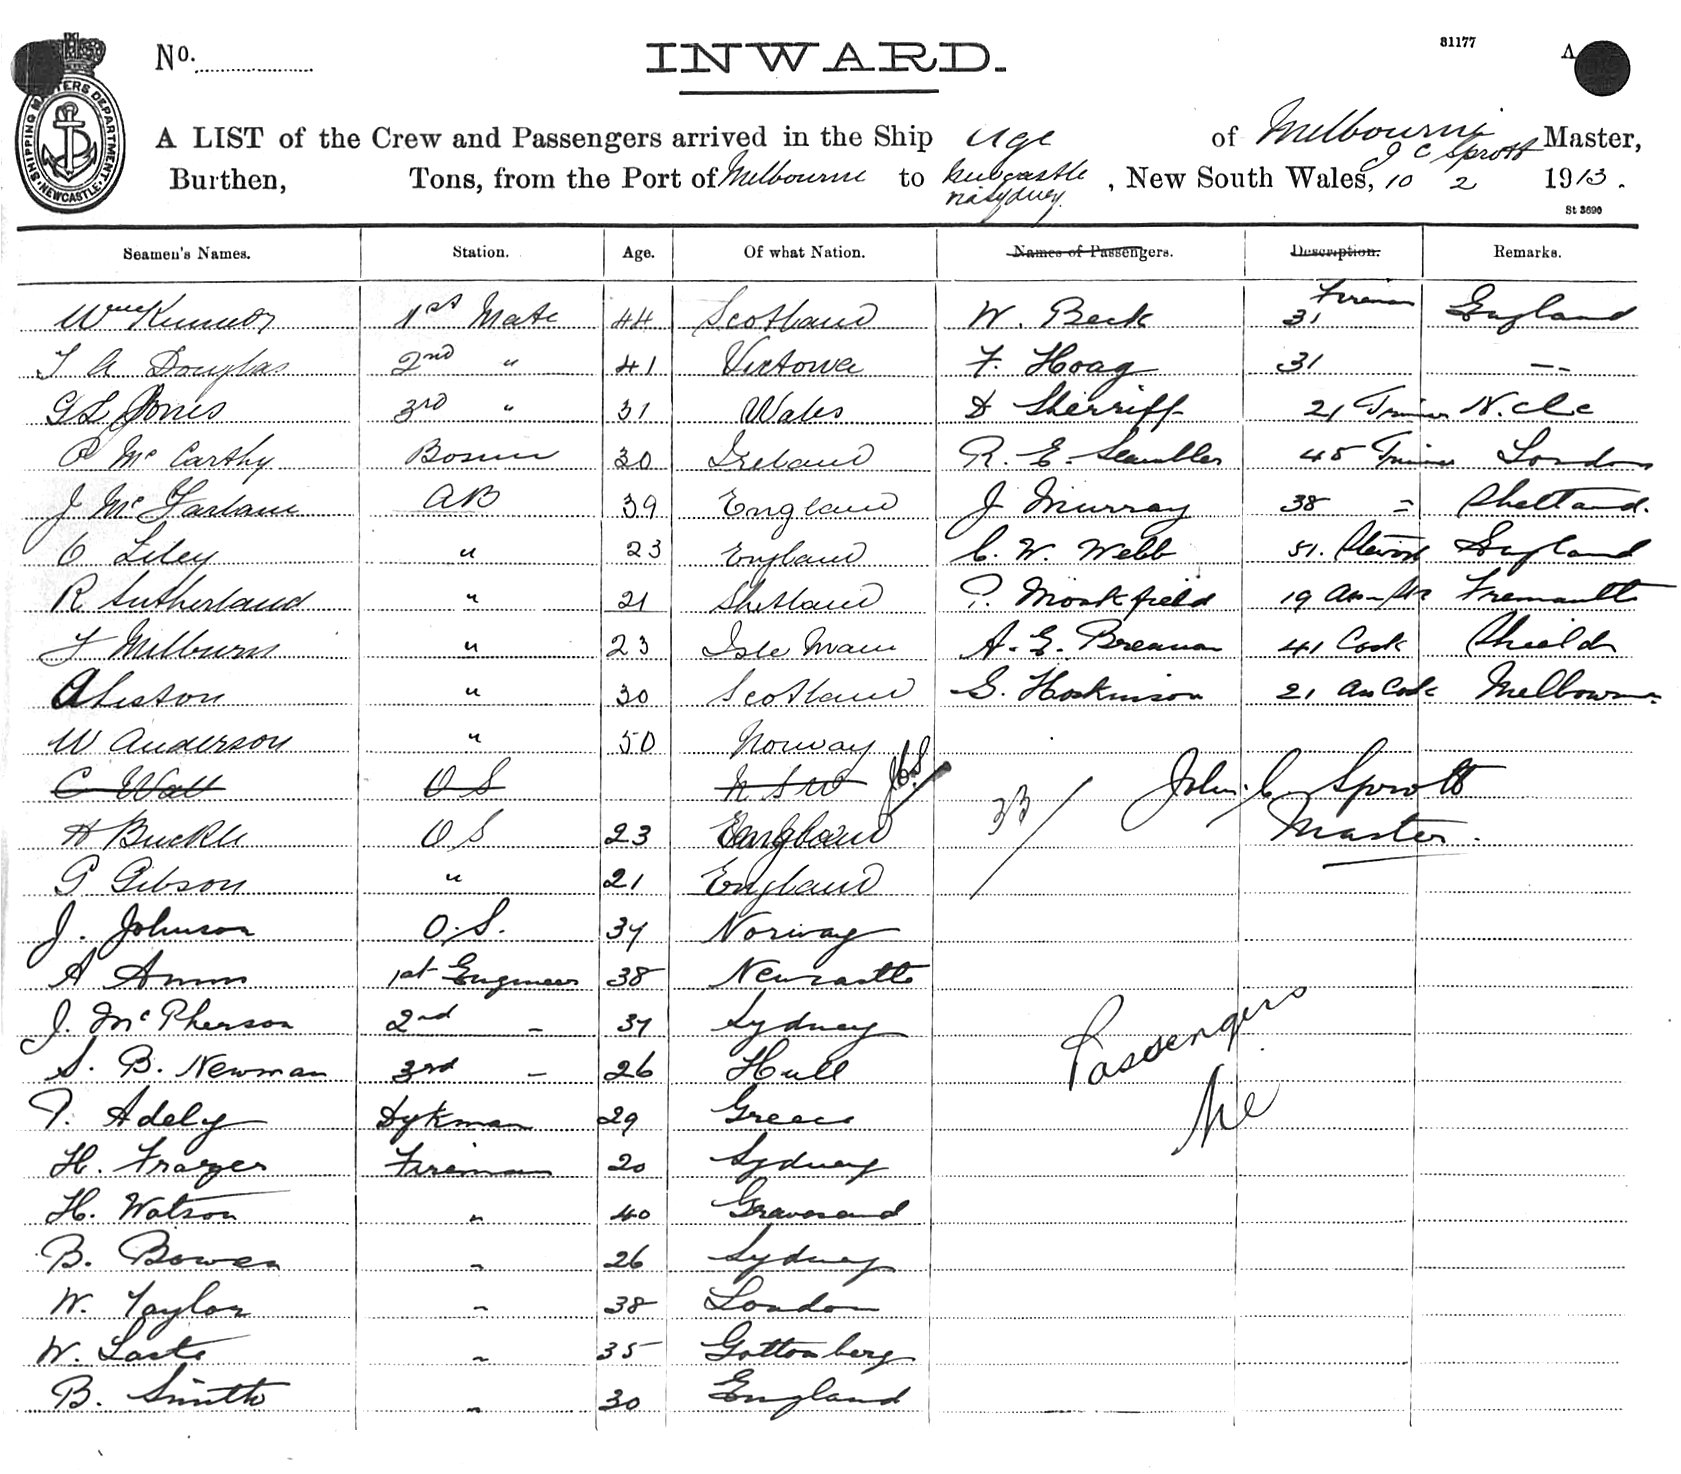 No.
INWARD.
31177
A
SHIPPING MASTERS DEPARTMENT. NEWCASTLE.
A LIST of the Crew and Passengers arrived in the Ship Age of Melbourne J C Sprott Master,
Burthen, Tons, from the Port of Melbourne to Newcastle via Sydney, New South Wales, 10 2 1913.
St 3690
Seamen's Names. Station. Age. Of what Nation. Names of Passengers. Description. Remarks.
Wm 1st Mate 44 Scotland W. Beck 31 Fireman England
T A Douglas 2nd " 41 Victoria F. Hoag 31 --
G L Jones 3rd " 31 Wales D Sherriff 21 Trimmer N. cle
P McCarthy Bosun 30 Ireland R. E. 45 Trimmer London
J McFarlane AB 39 England J Murray 38 = Shetland.
C Liley " 23 England C. W. Webb 51. Steward England
R Sutherland " 21 Shetland P. 19 Fremantle
F Milburn " 23 Isle Man A. E. Brennan 41 Cook Shields
A Liston " 30 Scotland S. Hoskinson 21 Ass Cook Melbourne
W Anderson " 50 Norway
C Watt O S N S W J.C.S
33/ John C Sprott
H Buckle O S 23 England Master.
G Gibson " 21 England
J. Johnson O.S. 34 Norway
A 1st Engineer 38 Newcastle
J. McPherson 2nd - 37 Sydney
S. B. Newman 3rd - 26 Hull
Passengers
P. Adely Dykman 29 Greece
Nil
H. Frazer Fireman 20 Sydney
H. Watson " 40 Gravesend
B. Bowen " 26 Sydney
W. Taylor " 38 London
W. " 35 Gottonberg
B. Smith " 30 England